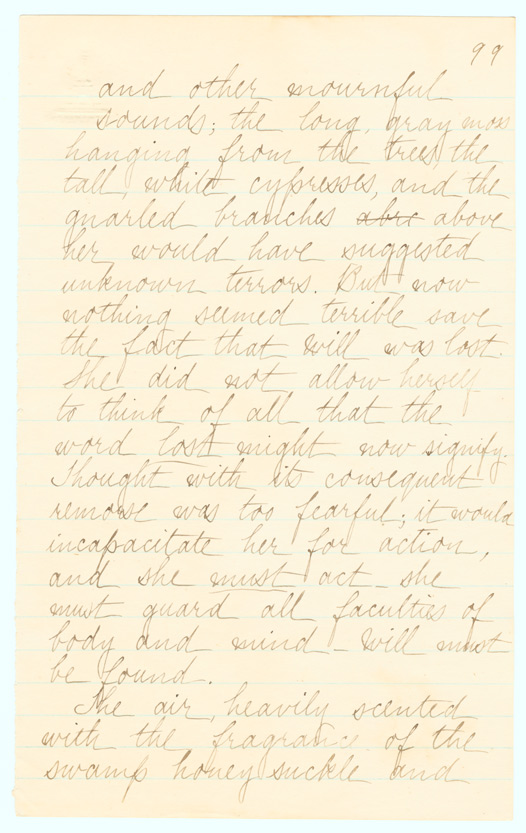 99
and other mournful
sounds; the long, gray moss
hanging from the trees, the
tall, white cypresses, and the
gnarled branches abre above
her would have suggested
unknown terrors. But now
nothing seemed terrible save
the fact that Will was lost.
She did not allow herself
to think of all that the
word lost might now signify.
Thought with its consequent
remorse was too fearful; it would
incapacitate her for action,
and she must act - she
must guard all faculties of
body and mind - Will must
be found.
The air, heavily scented
with the fragrance of the
swamp honey suckle and